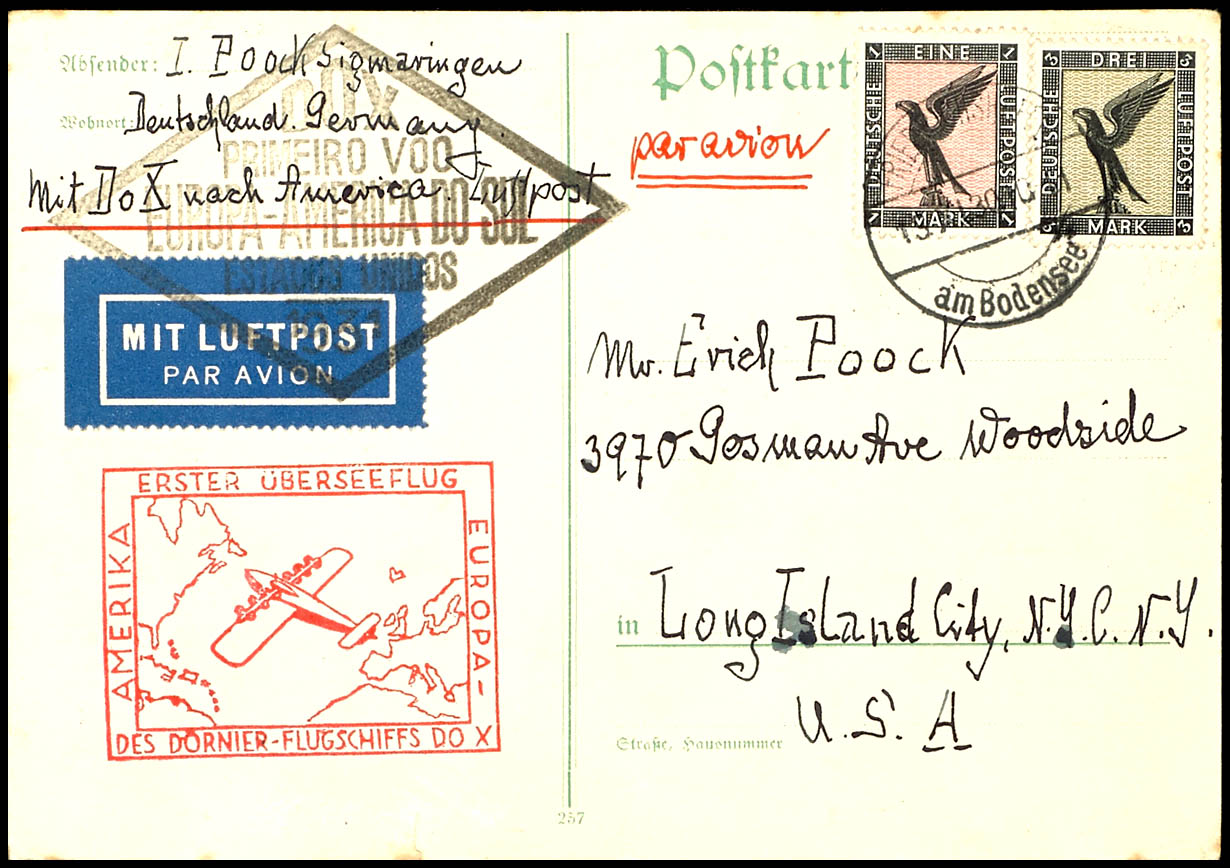 Absender: I. Poock Sigmaringen
Wohnort: Deutschland. Germany.
Mit Do X nach America. Luftpost
DO X
PRIMEIRO VOO
EUROPA-AMERICA DO SUL
ESTADOS UNIDOS
1931
MIT LUFTPOST
PAR AVION
ERSTER ÜBERSEEFLUG
EUROPA-
AMERIKA
DES DORNIER-FLUGSCHIFFS DO X
257
Postkart
par avion
1 EINE 1
DEUTSCHE
LUFTPOST
1 MARK 1
3 DREI 3
DEUTSCHE
LUFTPOST
3 MARK 3
am Bodensee
Mr. Erich Poock
3970 Gosman Ave Woodside
in Long Island City, N.Y.C. N.Y.
U. S. A
Straße, Hausnummer